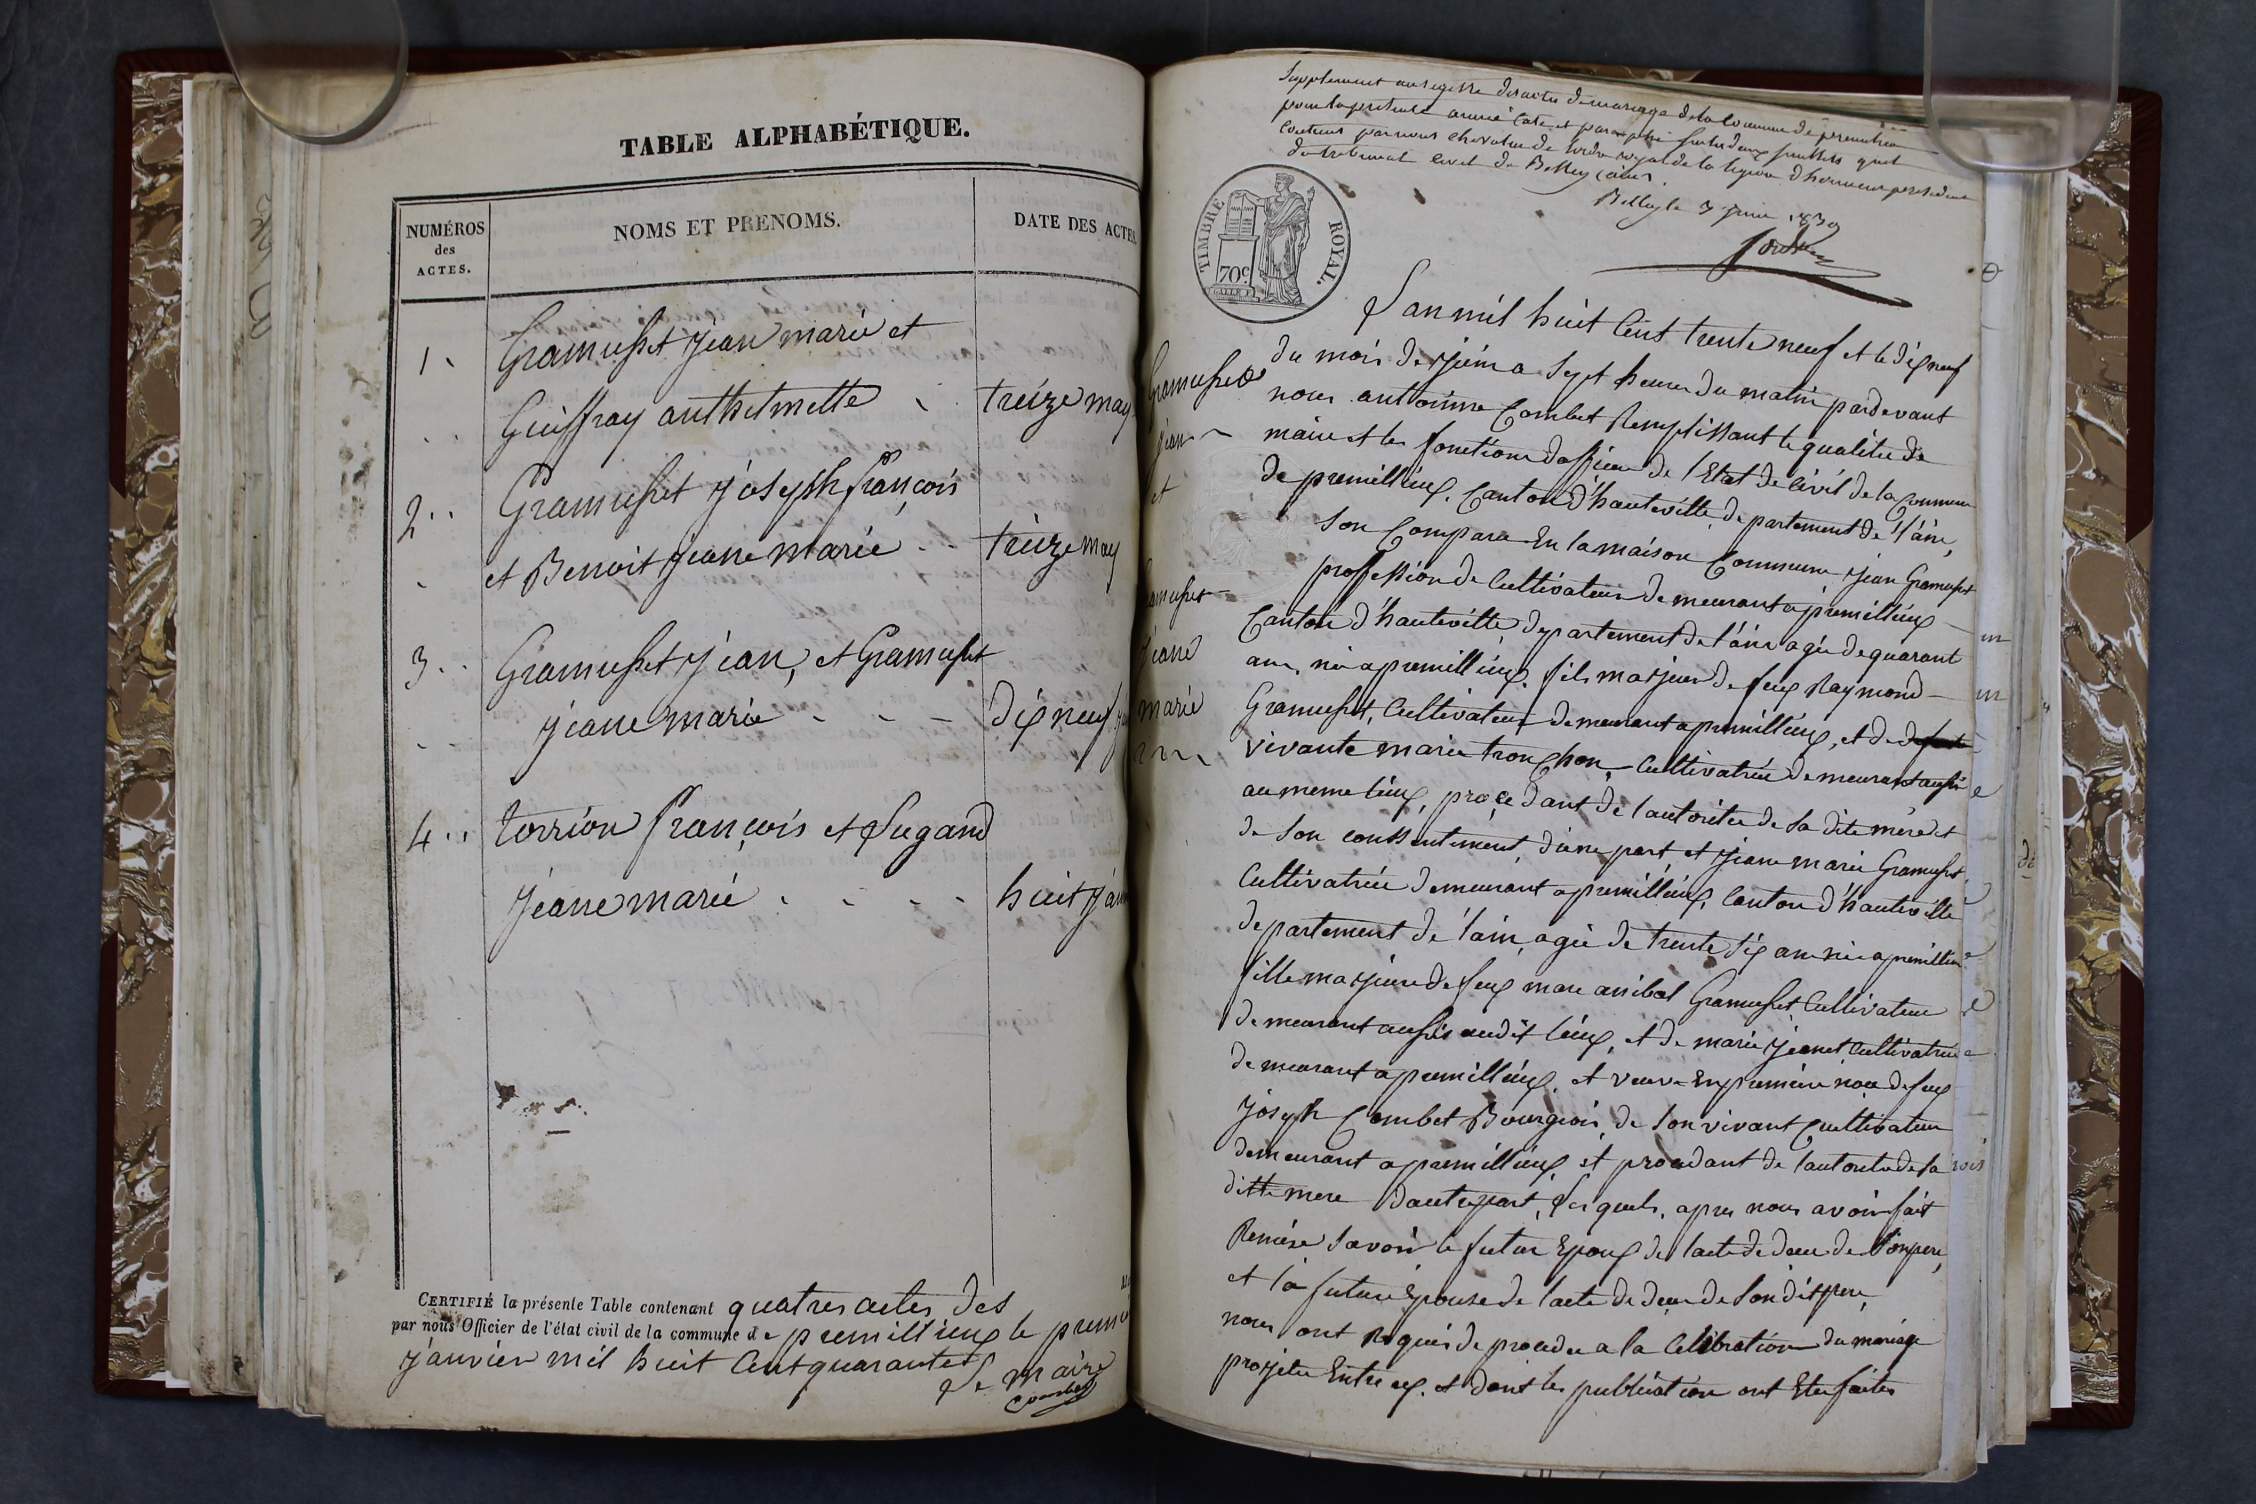 TABLE ALPHABÉTIQUE.
NUMÉROS des ACTES.
NOMS ET PRENOMS.
DATE DES ACTES
1. Gramusset jean marie et
Guiffray anthelmette treize may
2.. Gramusset joseph françois
et Benoit jeane marie .. treize may
3.. Gramusset jean, et Gramusset
jeane marie - - - dix neuf
4.. torrion françois et Lugand
jeane marie . - - - huit
CERTIFIÉ la présente Table contenant quatres actes, des
par nous Officier de l'état civil de la commune de premillieux le
janvier mil huit Cent quarante
Le maire
Combet
Supplement au registre des actes de mariage de la Commune de premillieu
pour la presente année coté et paraphé sur les deux feuillets qu'il
contient par nous chevalier de lordre royal de la legion d'honneur president
du tribunal civil de Belley (ain).
Belley le 3 juin 1839
TIMBRE ROYAL.
70c
Gramusset
jean
et
jeane
marie
Lan mil huit Cent trente neuf et le dix neuf
du mois de juin a sept heures du matin pardevant
nous anttoinne Combet Remplissant le qualitée de
maire et les fonctions dofficier de l'Etat de civil de la Commune
de premillieux, Canton d'hauteville, departement de l'ain,
son Compara En la maison Commune jean Gramusset
proffession de Cultivateur demeurant a premillieux
Canton d'hauteville departement de l'ain agée de quarant
ans, née a premillieux, fils majeur de feux Raymond
Gramusset, Cultivateur demeurant a premillieux, et de
vivante marie tronchon, Cultivatrice demeurant aussi
au meme lieux, procedant de l'autoritée de sa dite mère et
de son conssentement d'une part, et jeane marie Gramusset,
Cultivatrice demeurant a premillieux, Canton d'hauteville
departement de l'ain, agée de trente six ans née a premillieu
fille majeure de feux marc anibal Gramusset Cultivateur
demeurant aussis audit lieux, et de marie jeanet Cultivatrice
demeurant a premillieux, et veuve En premiere noce de feux
joseph Combet Bourgeois, de son vivant Cultivateur
demeurant a premillieux, et procedant de l'autorite de sa
ditte mere dautre part, Lesquels, apres nous avoir fait
Remise savoir le futur Epoux de lacte de deces de son pere,
et la future Epouse de lacte de deces de son dit pere,
nous ont Requis de proceder a la Celebration du mariage
projetté Entre eux, et dont les publication ont Etée faites